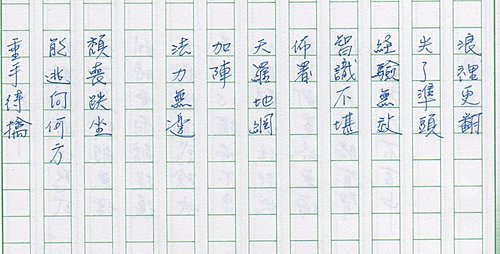 浪裡更翻
失了準頭
經驗無效
智識不堪
佈署
天羅地網
加陣
法力無邊
頹喪跌坐
能逃何何方
垂手待擒